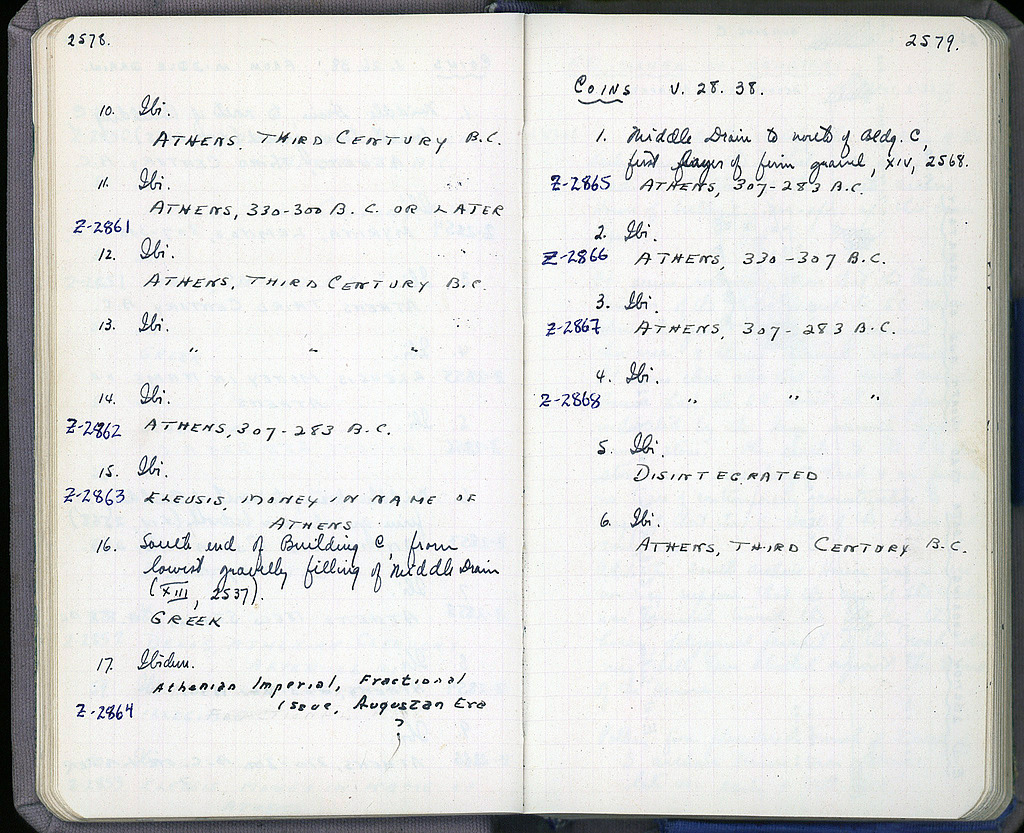 2578.
10. Ibi.
ATHENS, THIRD CENTURY B.C.
11. Ibi.
ATHENS, 330-300 B.C. OR LATER
Z-2861
12. Ibi.
ATHENS, THIRD CENTURY B.C.
13. Ibi.
" " "
14. Ibi.
Z-2862 ATHENS, 307-283 B.C.
15. Ibi.
Z-2863 ELEUSIS, MONEY IN NAME OF
ATHENS
16. South end of Building C, from
lowest gravelly filling of Middle Drain
(XIII, 2537).
GREEK
17. Ibidem.
Athenian Imperial, Fractional
Issue, Augustan Era
Z-2864
?
2579.
COINS V. 28. 38.
1. Middle Drain to north of Bldg. C,
first layer of firm gravel, XIV, 2568.
Z-2865 ATHENS, 307-283 B.C.
2. Ibi.
Z-2866 ATHENS, 330-307 B.C.
3. Ibi.
Z-2867 ATHENS, 307-283 B.C.
4. Ibi.
Z-2868 " " "
5. Ibi.
DISINTEGRATED
6. Ibi.
ATHENS, THIRD CENTURY B.C.